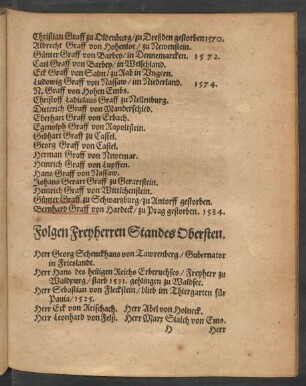 Christian Graff zu Oldenburg / zu Dreßden gestorben 1570.
Albrecht Graff von Hohenloe / zu Newenstein.
Günter Graff von Barbey / in Dennemarcken. 1572.
Carl Graff von Barbey / in Welschland.
Eck Graff von Salm / zu Rab in Vngern.
Ludowig Graff von Nassaw / im Niederland. 1574.
N. Graff von Hohen Embs.
Christoff Ladislaus Graff zu Nellenburg.
Dieterich Graff von Manderschied.
Eberhart Graff von Erbach.
Egenolph Graff von Rapolstein.
Gebhart Graff zu Cassel.
Georg Graff von Castel.
Herman Graff von Newenar.
Heinrich Graff von Lupffen.
Hans Graff von Nassaw.
Johans Gerart Graff zu Gerartstein.
Heinrich Graff von Wittichenstein.
Günter Graff zu Schwartzburg / zu Antorff gestorben.
Bernhard Graff von Hardeck / zu Prag gestorben. 1584.
Folgen Freyherren Standes Obersten.
Herr Georg Schenckhans von Tawtenberg / Gubernator
in Frieslandt.
Herr Hans des heiligen Reichs Erbtruchses / Freyherr zu
Waldpurg / starb 1511. gehlingen zu Waldsee.
Herr Sebastian von Fleckstein / blieb im Thiergarten für
Pauia / 1525.
Herr Eck von Reischach. Herr Abel von Holneck.
Herr Leonhard von Felß. Herr Marx Sitich von Ems.
H Herr